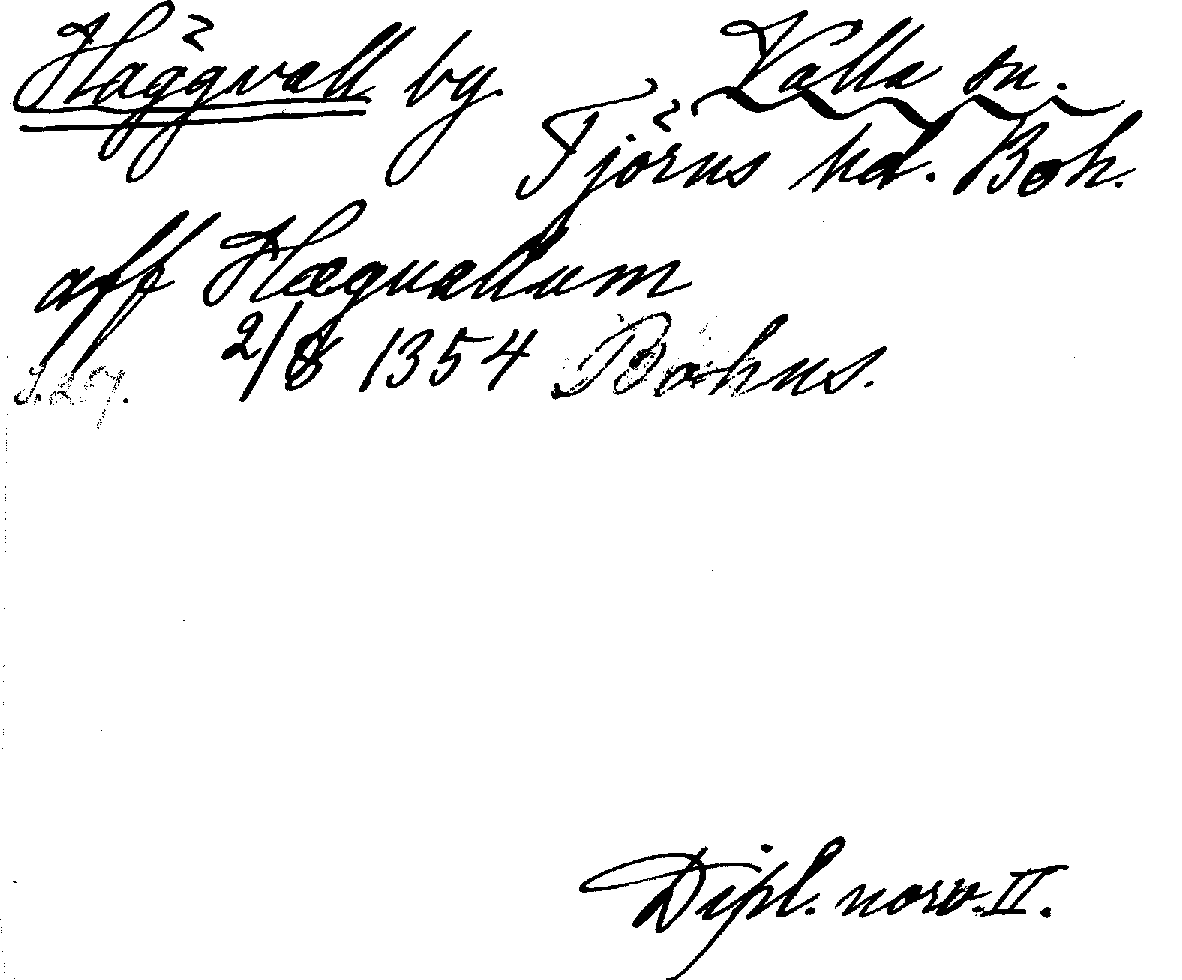 Häggvall by. Valla sn.
Tjörns hd. Boh.
aff Hæguallum
2/8 1354 Bohus.
S. 257.
Dipl. norv. II.